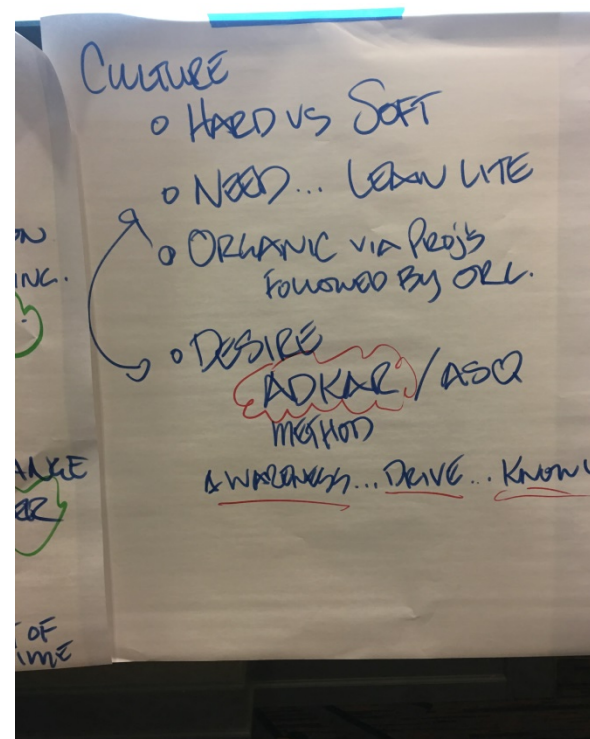 CULTURE
o HARD VS SOFT
o NEED... LEAN LITE
o ORGANIC VIA PROJ'S
FOLLOWED BY ORG.
o DESIRE
ADKAR / ASQ
METHOD
AWARENESS... DRIVE... KNOW
ON
ING.
ANGE
ER
OF
TIME